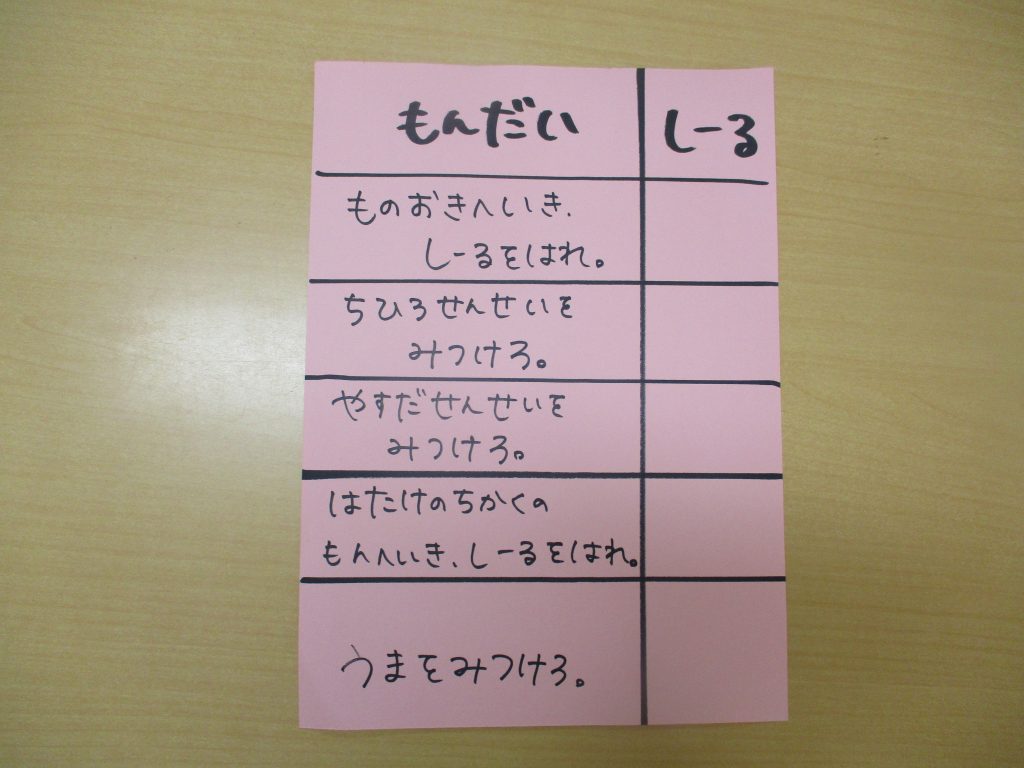 もんだい しーる
ものおきへいき、
しーるをはれ。
ちひろせんせいを
みつけろ。
やすだせんせいを
みつけろ。
はたけのちかくの
もんへいき、しーるをはれ。
うまをみつけろ。